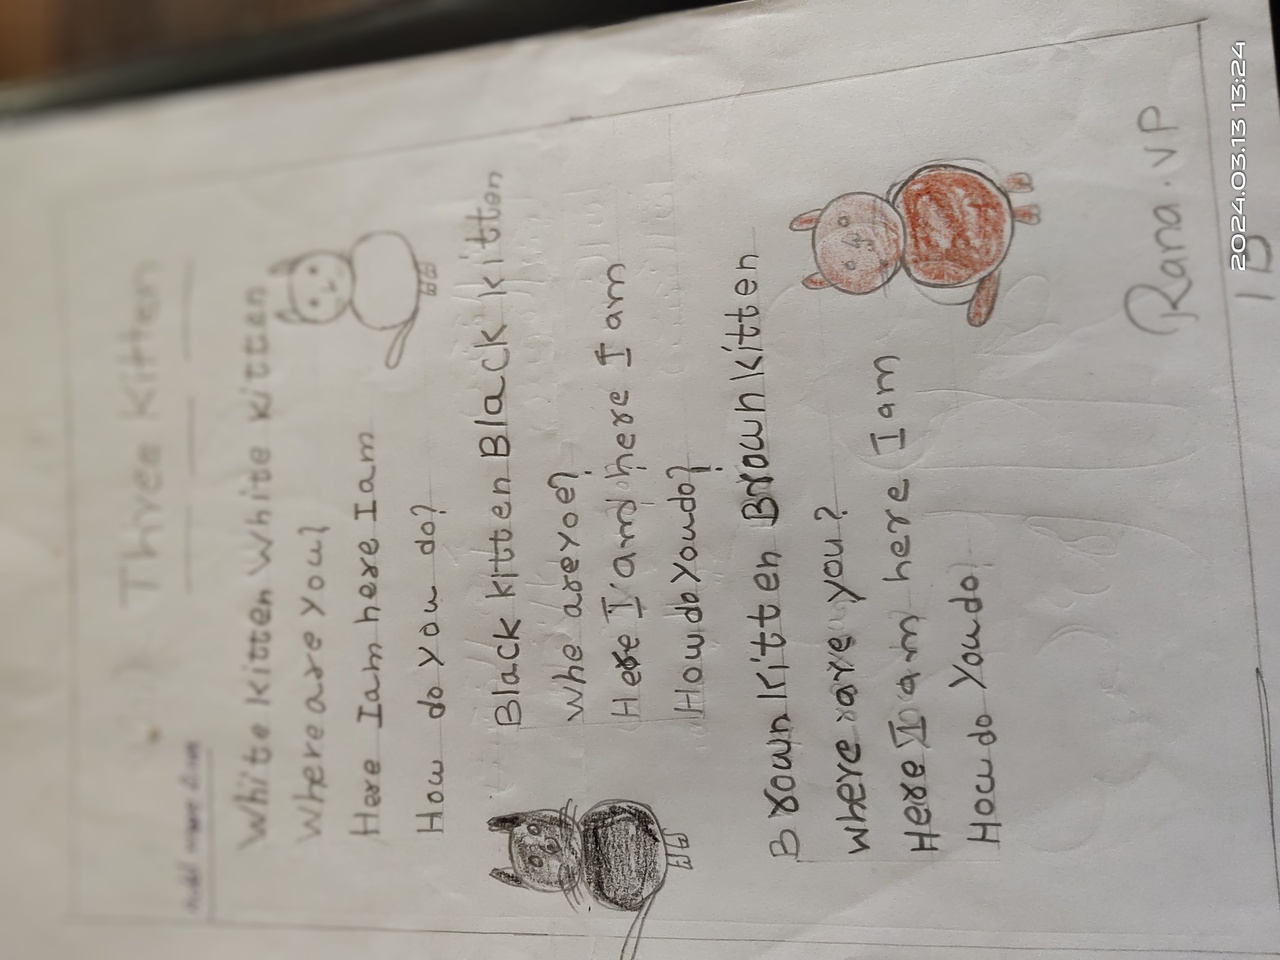 Add more lines
Three Kitten
White kitten white kitten
Where are you?
Here I am here I am
How do you do?
Black kitten Black kitten
Whe are yoe?
Here I am here I am
How do you do?
Brown kitten Brown kitten
where are you?
Here I am here I am
How do you do!
Rana.VP
1 B
2024.03.13 13:24